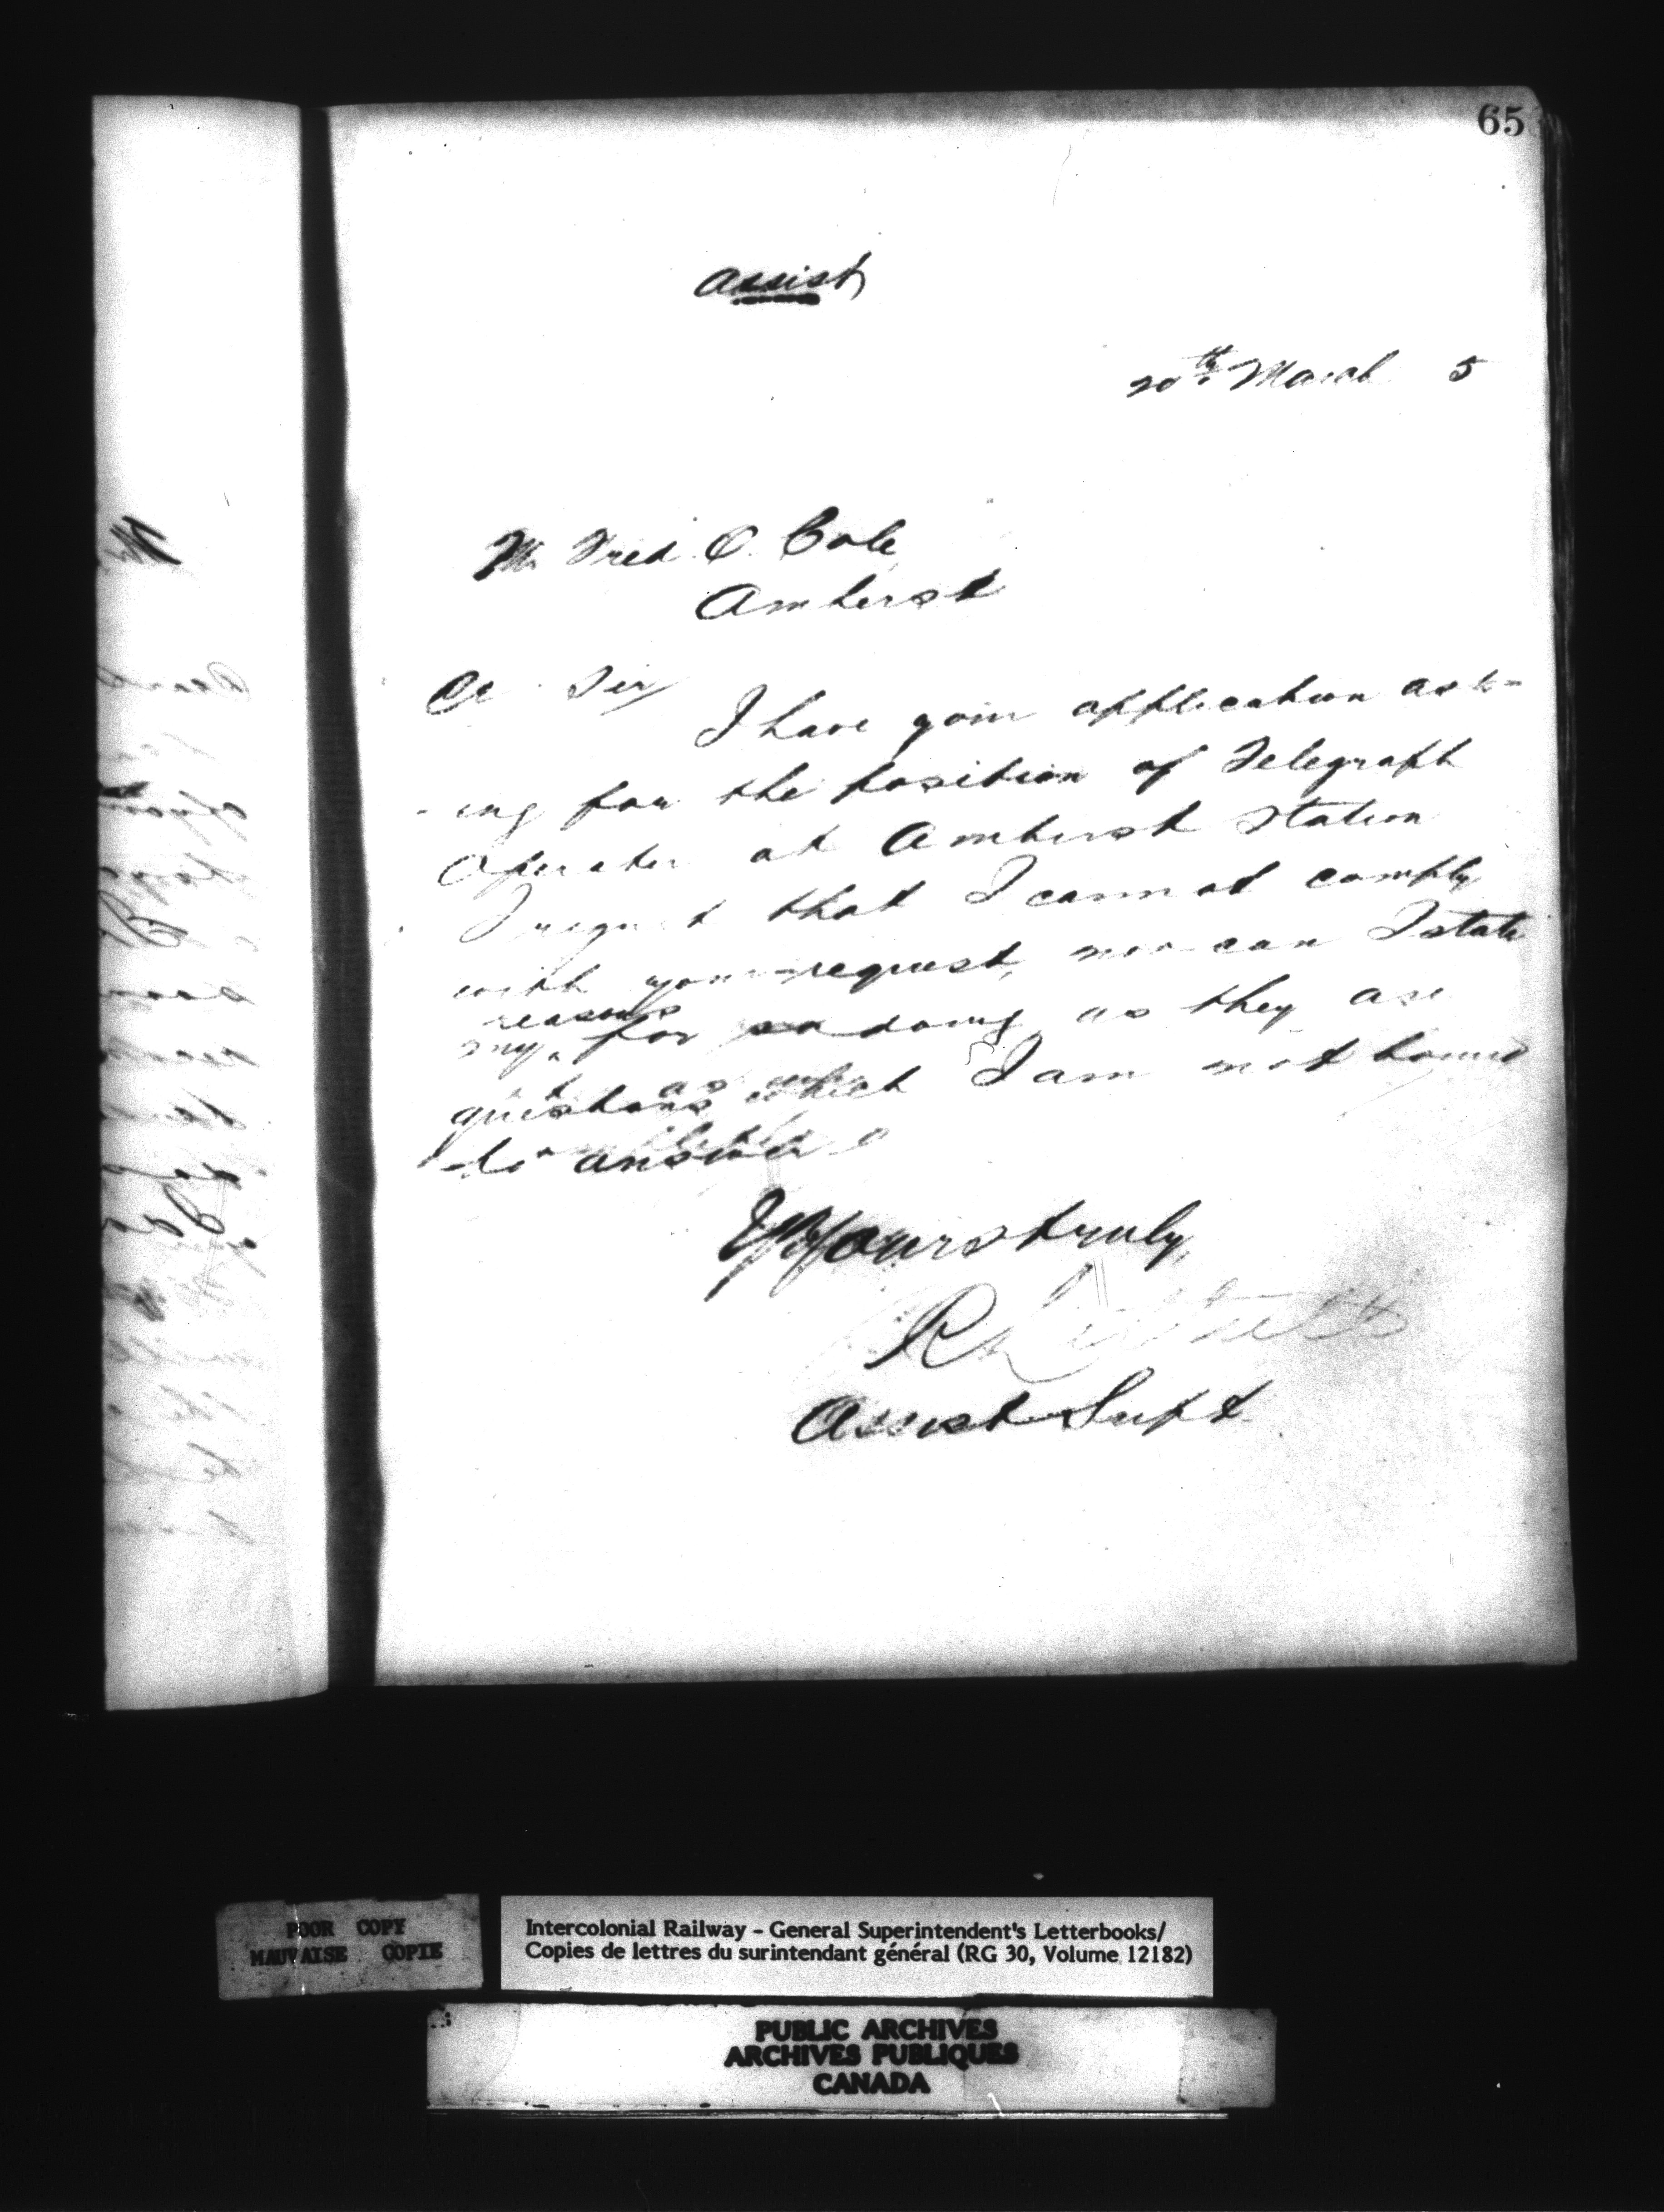 65
Assist
20th March 5
Mr Fred. O. Cole,
Amherst
De Sir
I have your application ask=
-ing for the position of Telegraph
Operator at Amherst Station
I regret that I cannot comply
with your request, nor can I state
reasons
my for so doing, as they are
questions which I am not bound
to answer
Yours truly,
R
Assist Supt.
POOR COPY
MAUVAISE COPIE
Intercolonial Railway – General Superintendent's Letterbooks/
Copies de lettres du surintendant général (RG 30, Volume 12182)
PUBLIC ARCHIVES
ARCHIVES PUBLIQUES
CANADA